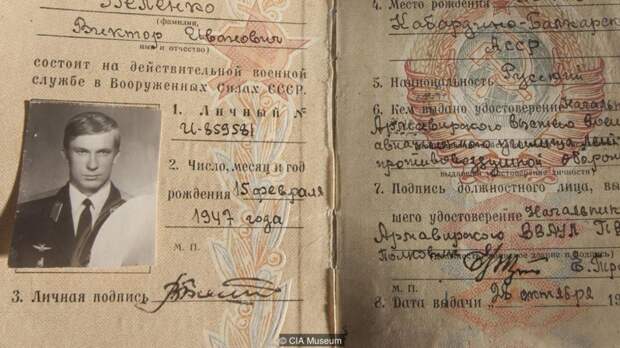 Беленко
(фамилия,
Виктор Иванович
имя и отчество)
состоит на действительной военной
службе в Вооруженных Силах СССР.
1. Личный №
И-859581
2. Число, месяц и год
рождения 15 февраля
1947 года
М. П.
3. Личная подпись
4. Место рождения
Кабардино-Балкарск
АССР
5. Национальность Русский
6. Кем выдано удостоверение Начальн
Армавирского высшего вое
авиационного училища
противовоздушной оборон
7. Подпись должностного лица, вы
шего удостоверение Начальник
Армавирского ВВАУЛ П
Полковник
М. П.
8. Дата выдачи 28 октября 19
© CIA Museum